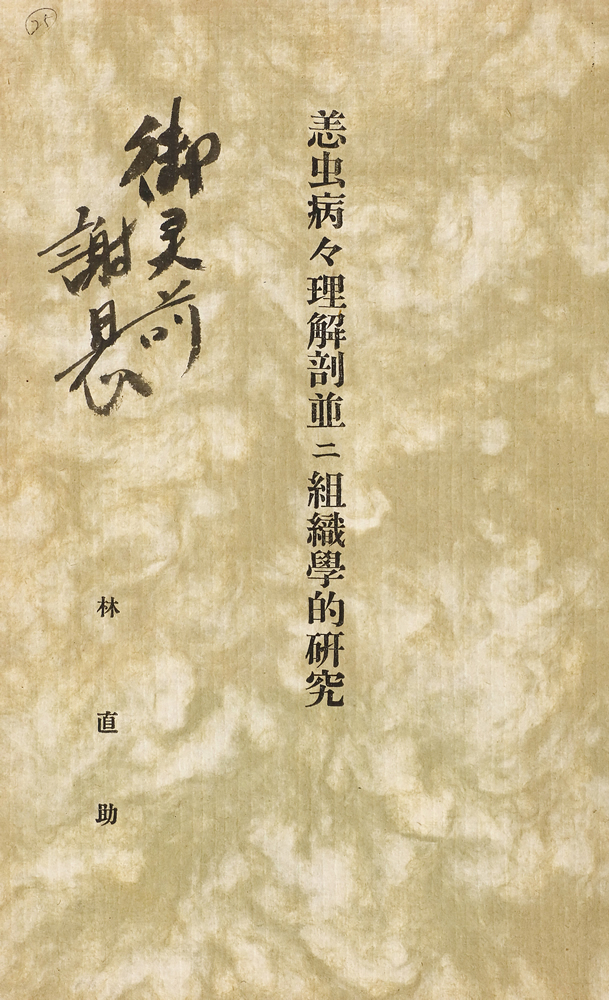 恙虫病々理解剖並ニ組織學的研究
御灵前
謝恩
林直助
25